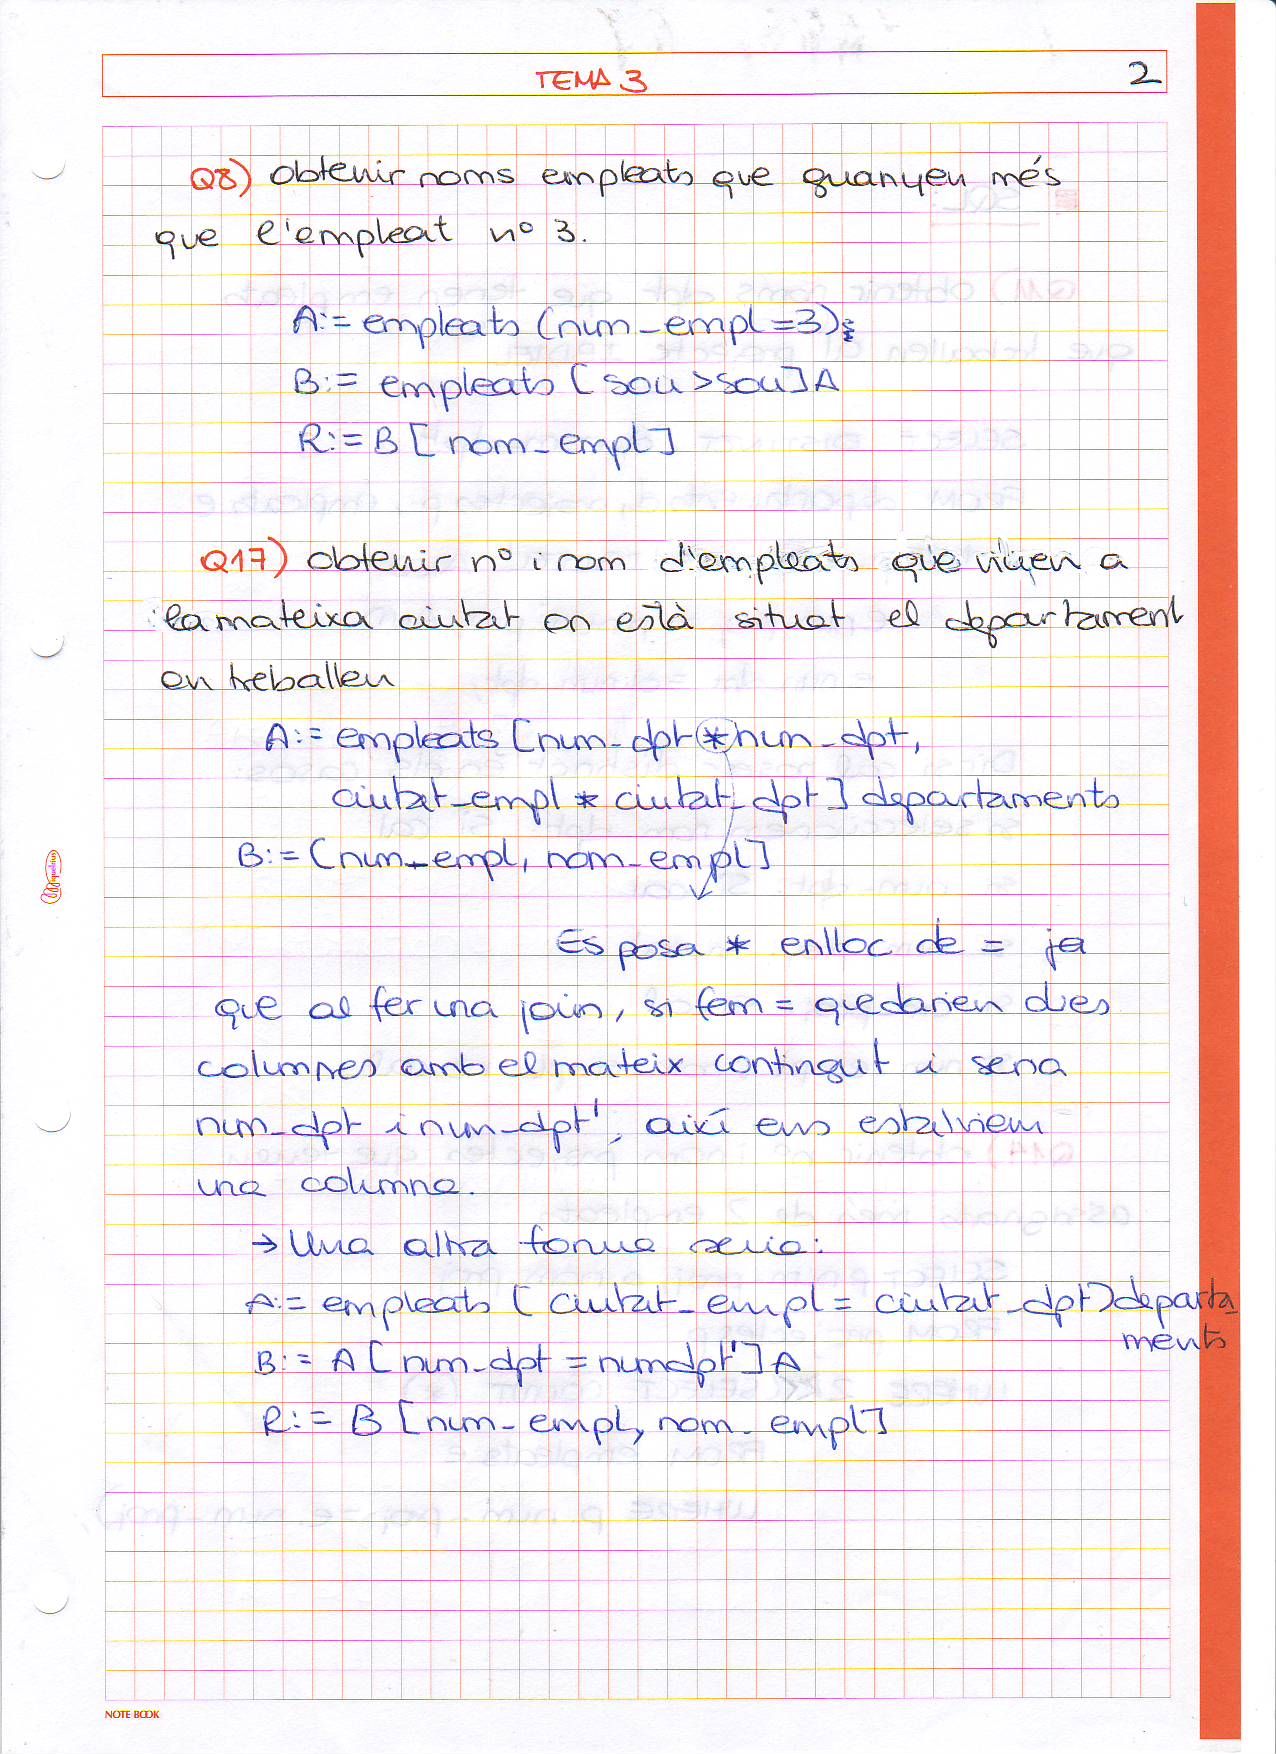 TEMA 3
2
Q8) obtenir noms empleats que guanyen més
que l'empleat nº 3.
A:= empleats (num_empl=3);
B:= empleats [sou>sou]A
R:=B[nom_empl]
Q17) obtenir nº i nom d'empleats que viuen a
la mateixa ciutat on està situat el departament
on treballen
A:= empleats [num_dpt * num_dpt,
ciutat_empl * ciutat_dpt] departaments
B:= [num_empl, nom_empl]
Es posa * enlloc de = ja
que al fer una join, si fem = quedarien dues
columnes amb el mateix contingut i seria
num_dpt i num_dpt', així ens estalviem
una columna.
→ Una altra forma seria:
A:= empleats [ciutat_empl = ciutat_dpt]departa_
ments
B:= A[num_dpt = numdpt']A
R:= B[num_empl, nom_empl]
miquelrius
NOTE BOOK